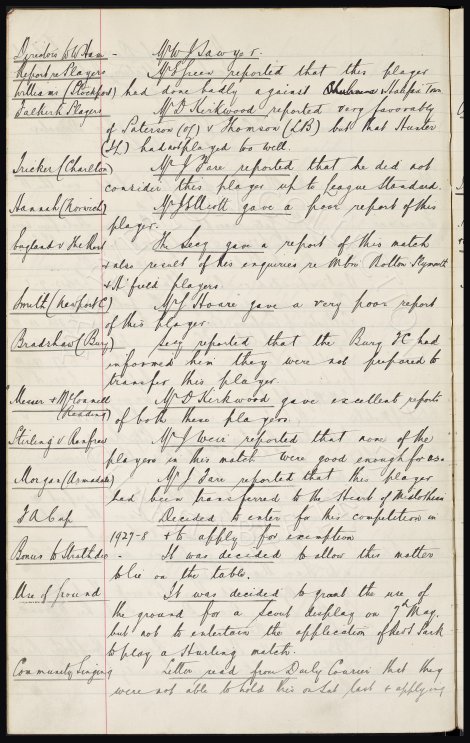 Directors to W Ham - Mr W J Sawyer.
Report re Players Mr E Green reported that this player
Williams (Stockport) had done badly against & Halifax Town
Falkirk Players Mr D Kirkwood reported very favorably
of Paterson (OL) & Thomson (LB) but that Hunter
(IL) had not played too well.
Tricker (Charlton) Mr J Fare reported that he did not
consider this player up to League Standard.
Hannah (Norwich) Mr gave a poor report of this
player.
England v The Rest The Secy gave a report of this match
& also result of his enquiries re W Bro Bolton Plymouth
& N' field players
Smith (Newport C) Mr J Hoare gave a very poor report
of this player
Bradshaw (Bury) Secy reported that the Bury FC had
informed him they were not prepared to
transfer this player.
Messer & McConnell Mr D Kirkwood gave excellent reports
(Reading) of both these players.
Stirling v Renfrew Mr J Weir reported that none of the
players in this match were good enough for us
Morgan (Armadale) Mr J Fare reported that this player
had been transferred to the Heart of Midlothian
F A Cup Decided to enter for this competition in
1927-8 & to apply for exemption
Bonus to Strathdee - It was decided to allow this matter
to lie on the table.
Use of Ground It was decided to grant the use of
the ground for a Scout display on 7th May.
but not to entertain the application of Park
to play a Hurling match.
Community Singing Letter read from Daily Courier that they
were not able to hold this on Sat last & applying